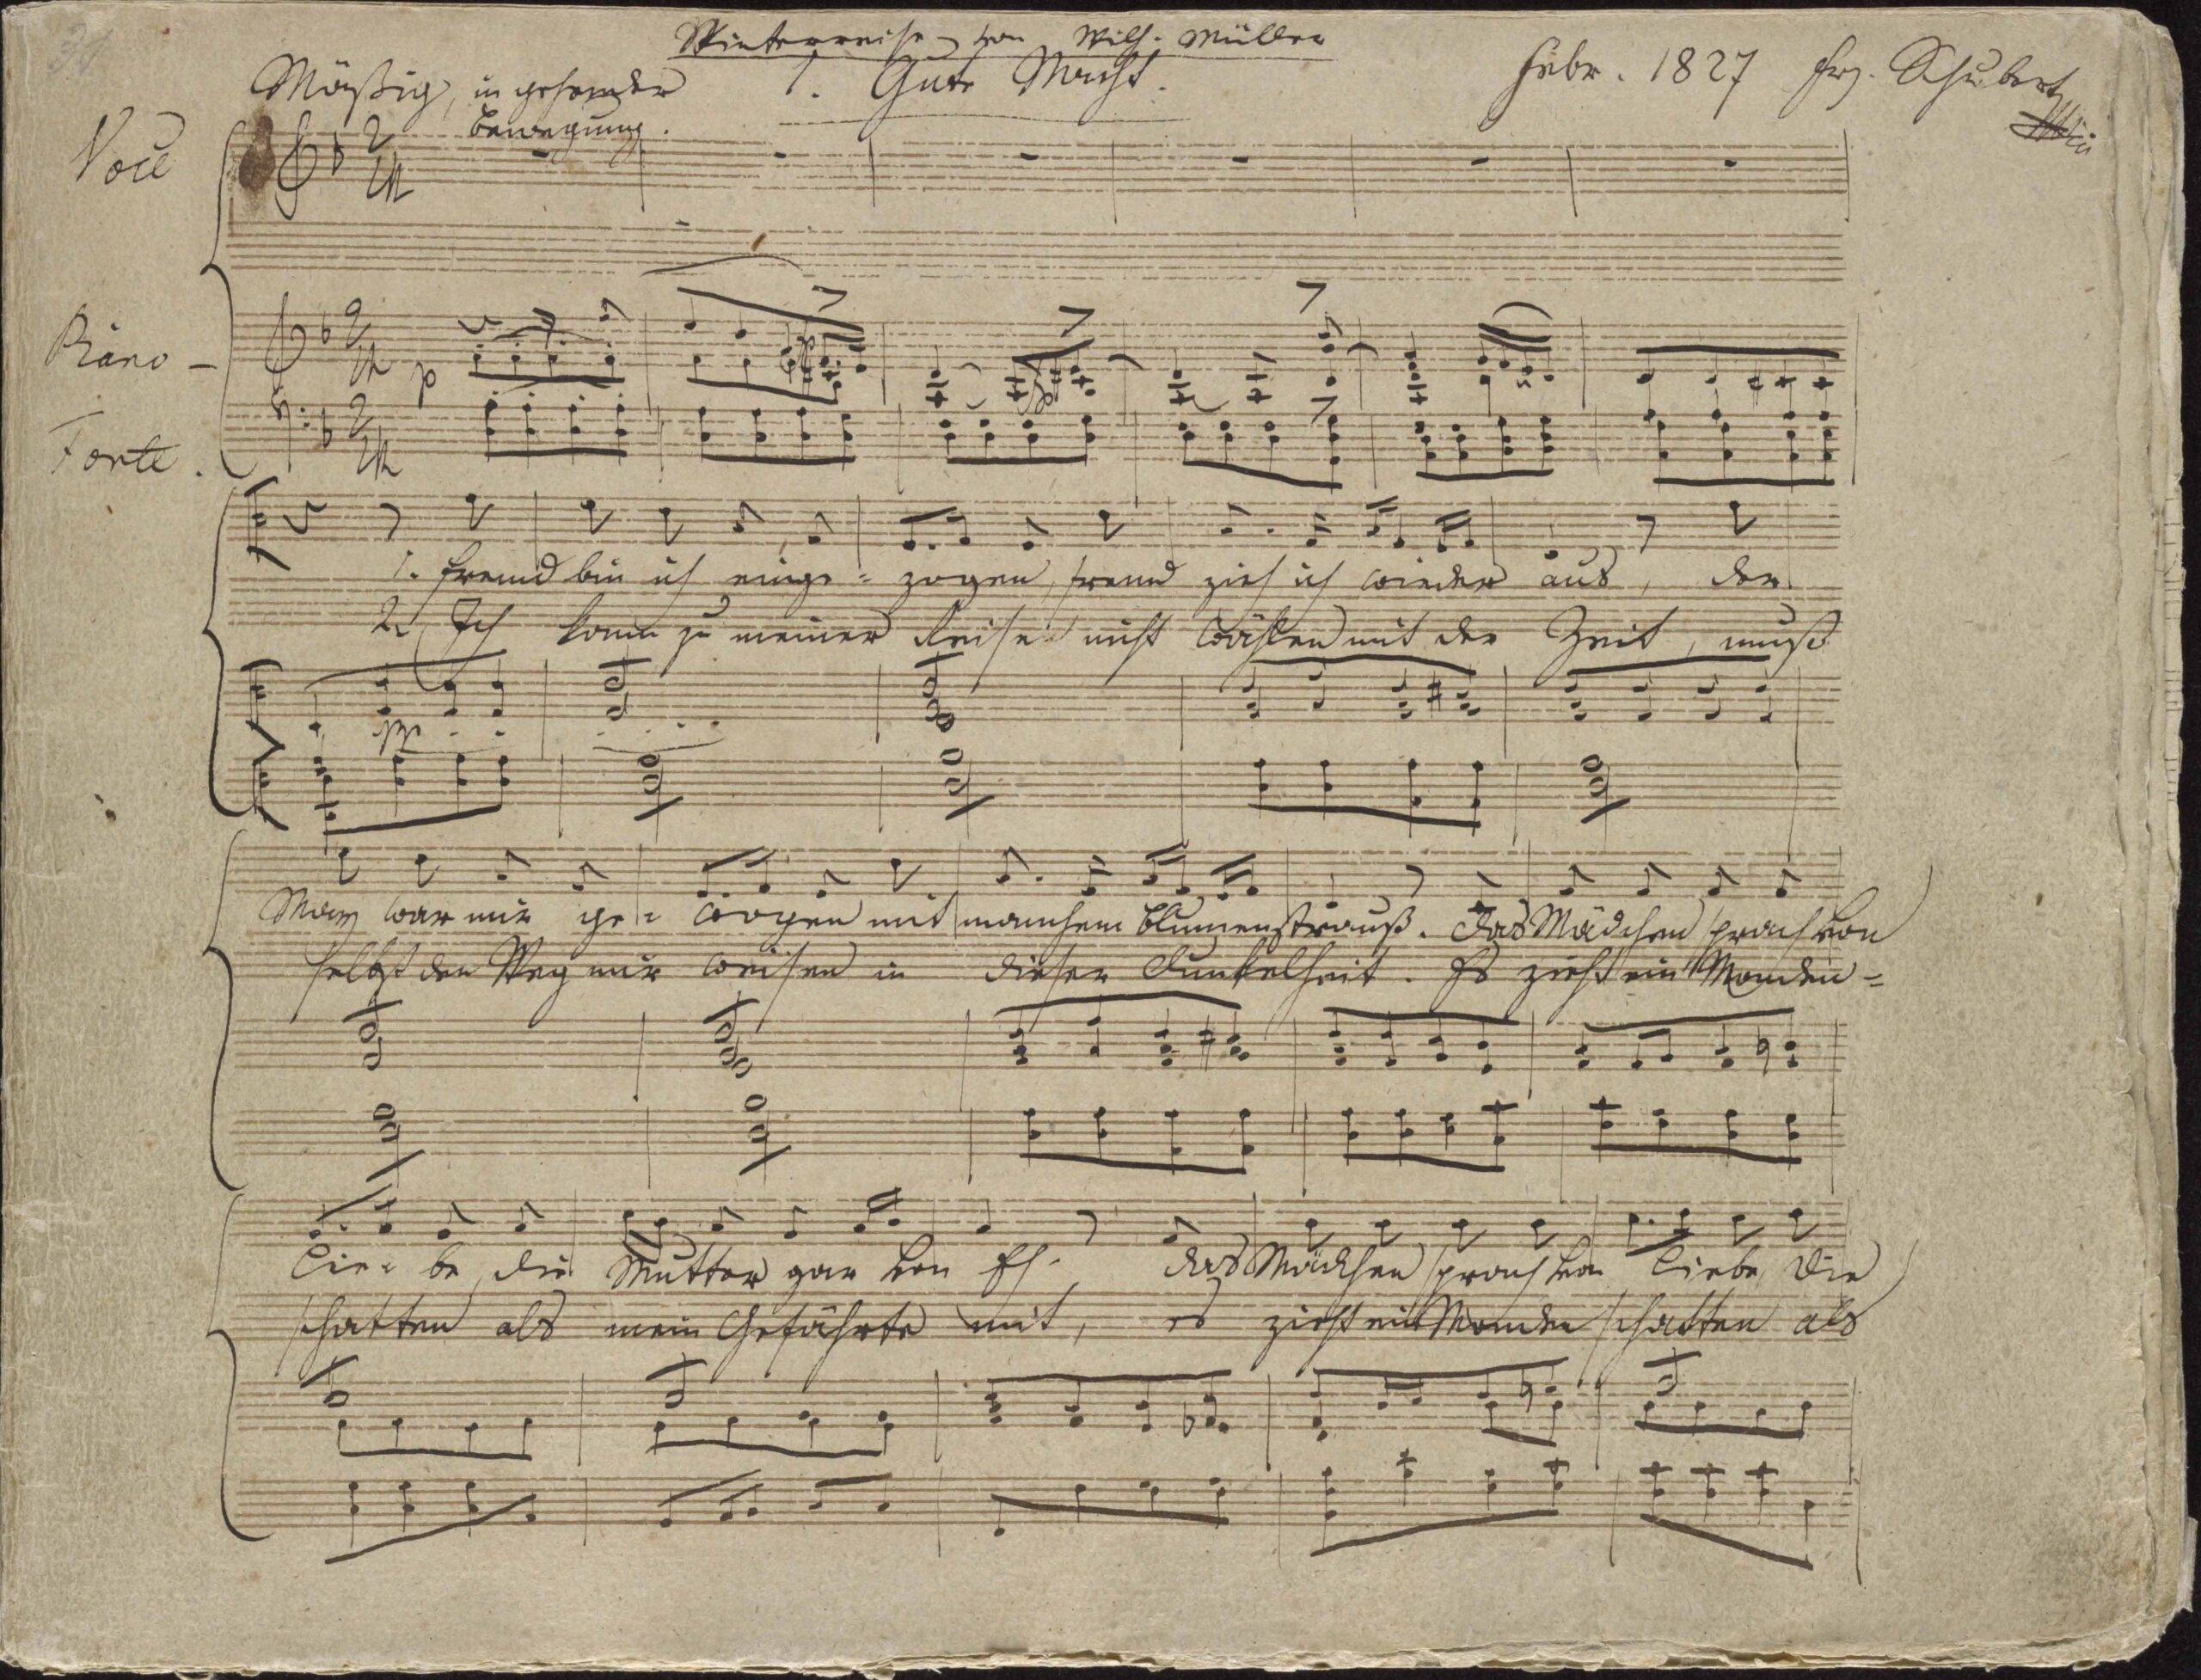 31
Winterreise von Wilh. Müller
Mäßig, in gehender 1. Gute Nacht. Febr. 1827 Frz. Schubert
Bewegung.
Voce
Piano-
p
Forte.
1. Fremd bin ich einge- zogen, fremd zieh ich wieder aus, der
2. Ich kann zu meiner Reise nicht wählen mit der Zeit, muß
pp
May war mir ge- wogen mit manchem Blumenstrauß. Das Mädchen sprach von
selbst den Weg mir weisen in dieser Dunkelheit. Es zieht ein Monden-
Lie- be, die Mutter gar von Eh', das Mädchen sprach von Liebe, die
schatten als mein Gefährte mit, es zieht ein Mondenschatten als